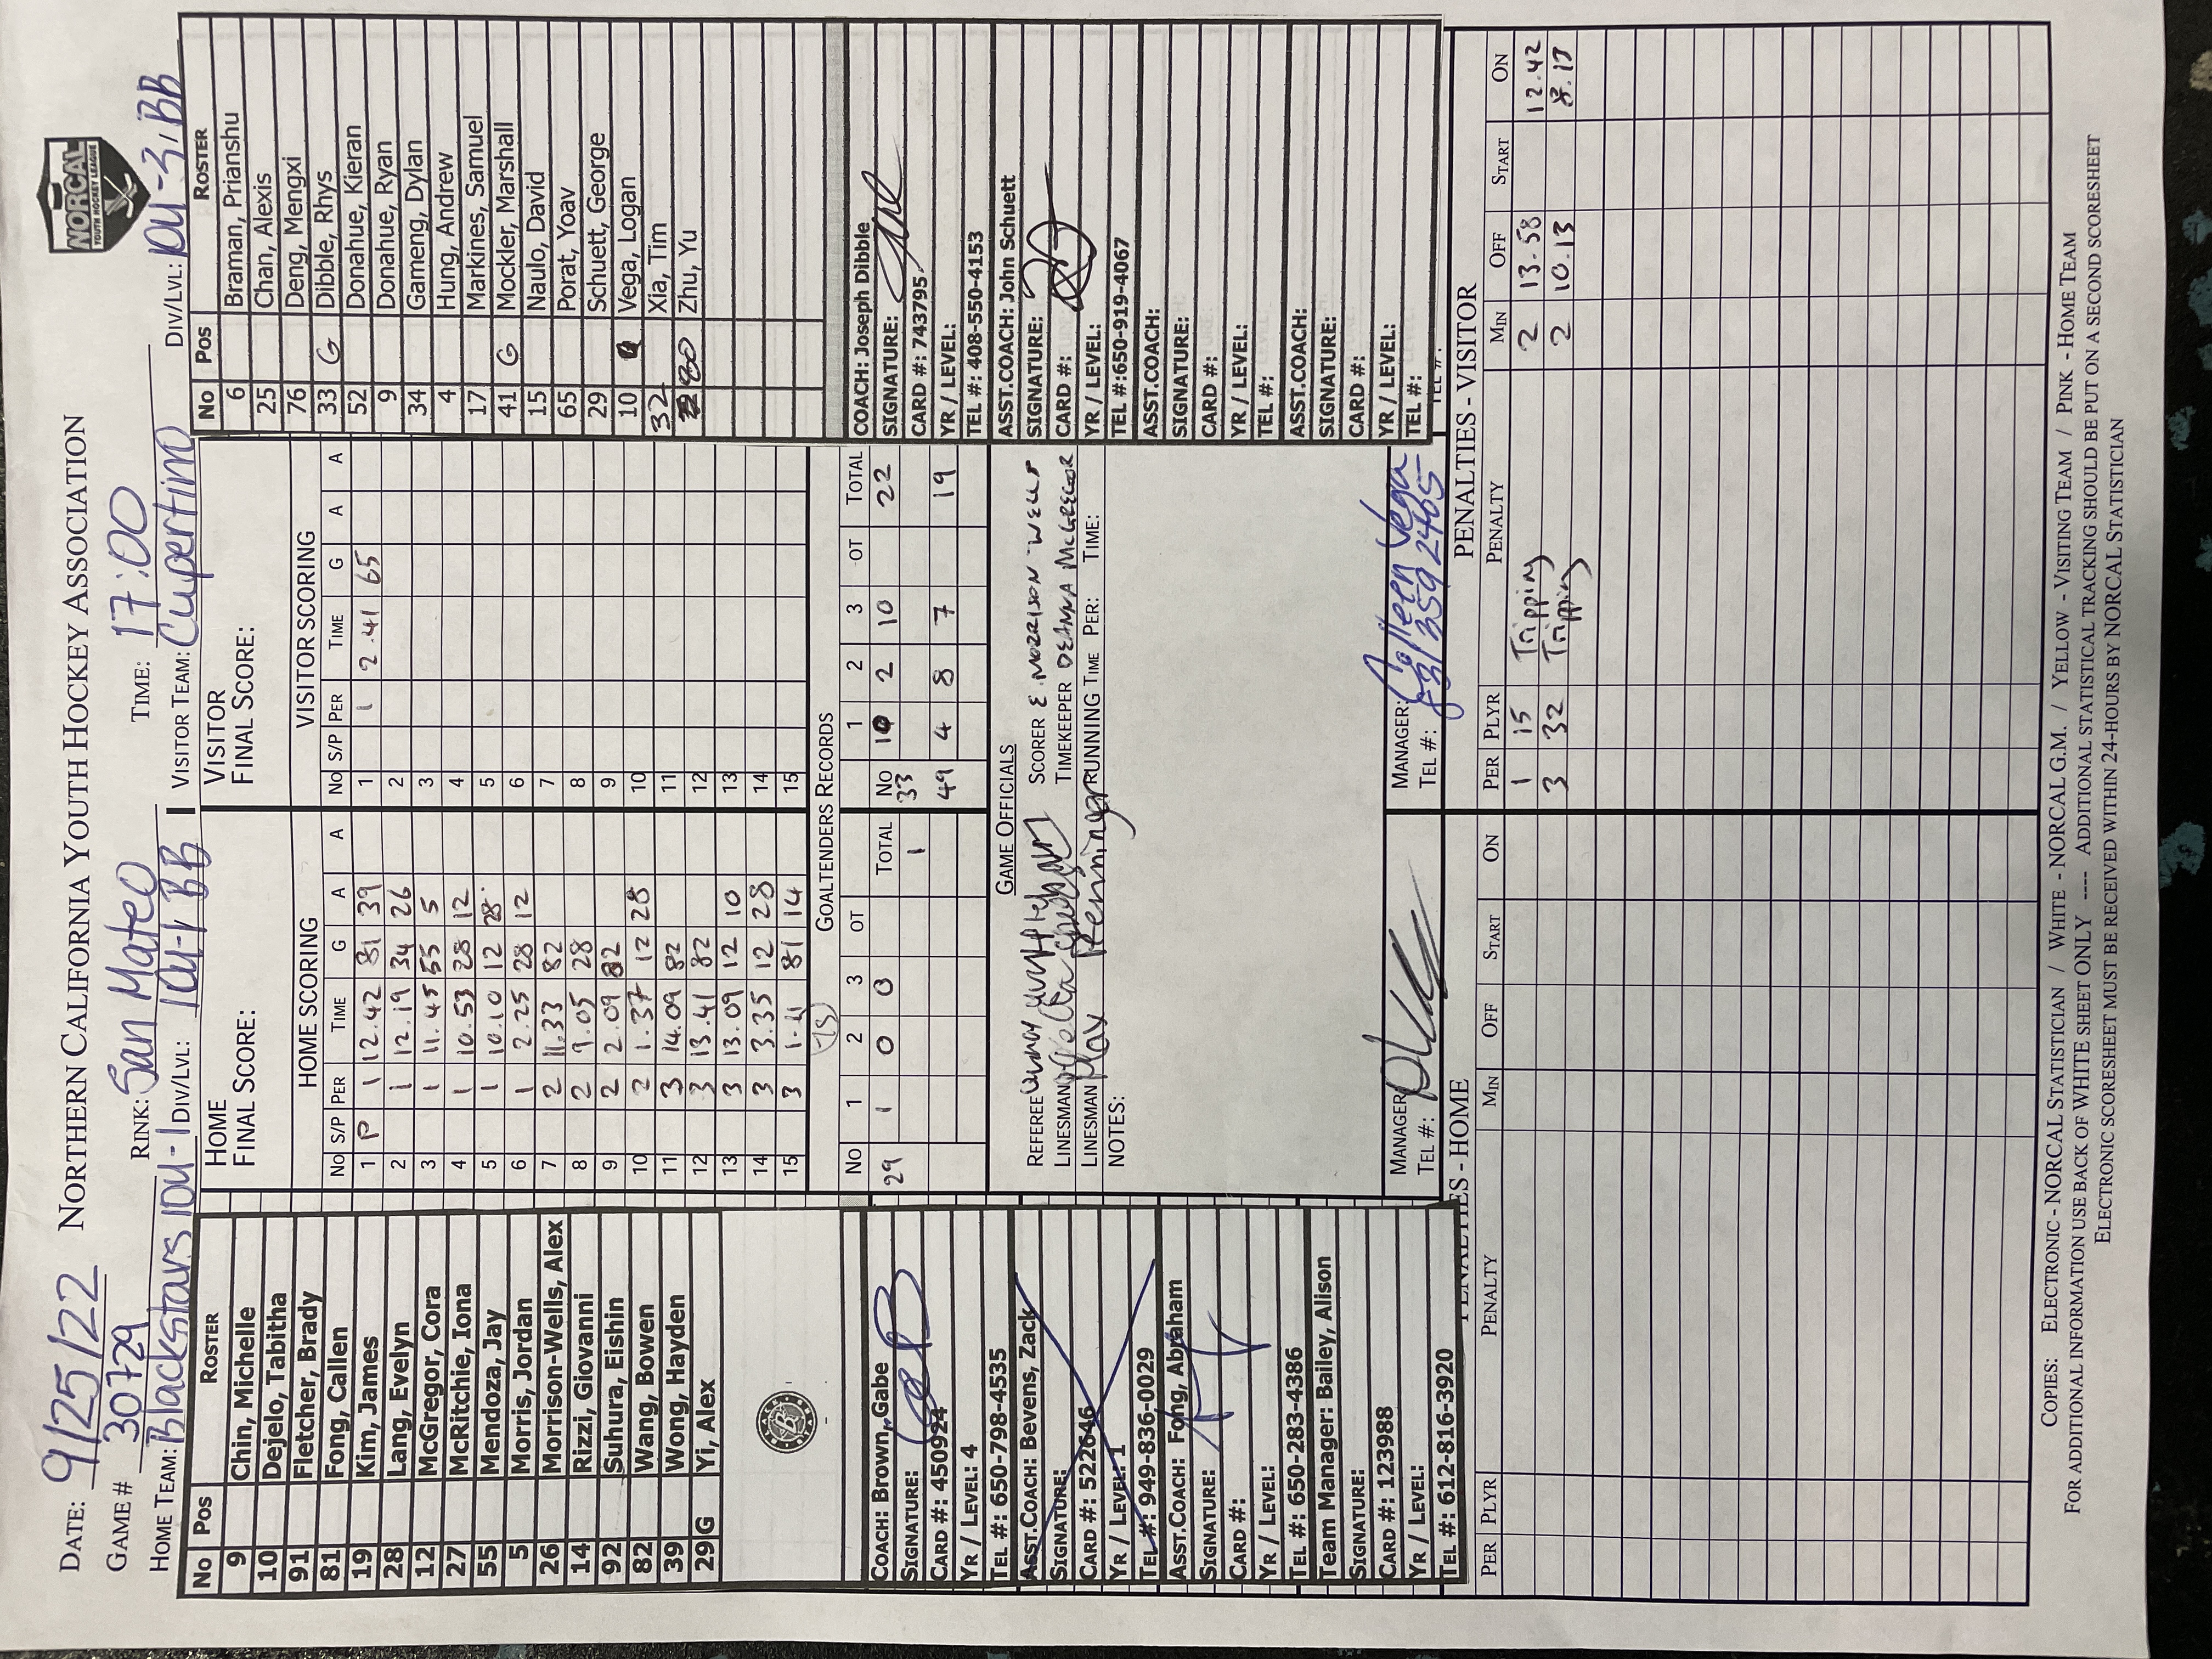 DATE: 9/25/22 NORTHERN CALIFORNIA YOUTH HOCKEY ASSOCIATION
NORCAL
YOUTH HOCKEY LEAGUE
GAME # 30729 RINK: San Mateo TIME: 17:00
HOME TEAM: Blackstars 10U-1 DIV/LVL: 10U-1 BB VISITOR TEAM: Cupertino DIV/LVL: 10U-3, BB
No Pos ROSTER
9 Chin, Michelle
10 Dejelo, Tabitha
91 Fletcher, Brady
81 Fong, Callen
19 Kim, James
28 Lang, Evelyn
12 McGregor, Cora
27 McRitchie, Iona
55 Mendoza, Jay
5 Morris, Jordan
26 Morrison-Wells, Alex
14 Rizzi, Giovanni
92 Suhura, Eishin
82 Wang, Bowen
39 Wong, Hayden
29 G Yi, Alex
COACH: Brown, Gabe
SIGNATURE:
CARD #: 450924
YR / LEVEL: 4
TEL #: 650-798-4535
ASST.COACH: Bevens, Zack
SIGNATURE:
CARD #: 522646
YR / LEVEL: 1
TEL #: 949-836-0029
ASST.COACH: Fong, Abraham
SIGNATURE:
CARD #:
YR / LEVEL:
TEL #: 650-283-4386
Team Manager: Bailey, Alison
SIGNATURE:
CARD #: 123988
YR / LEVEL:
TEL #: 612-816-3920
HOME
FINAL SCORE:
HOME SCORING
No S/P PER TIME G A A
1 P 1 12.42 81 39
2 1 12.19 34 26
3 1 11.45 55 5
4 1 10.53 28 12
5 1 10.10 12 28
6 1 2.25 28 12
7 2 11.33 82
8 2 9.05 28
9 2 2.09 82
10 2 1.37 12 28
11 3 14.09 82
12 3 13.41 82
13 3 13.09 12 10
14 3 3.35 12 28
15 3 1.41 81 14
VISITOR
FINAL SCORE:
VISITOR SCORING
No S/P PER TIME G A A
1 1 2.41 65
2
3
4
5
6
7
8
9
10
11
12
13
14
15
GOALTENDERS RECORDS
No 1 2 3 OT TOTAL No 1 2 3 OT TOTAL
29 1 0 0 1 33 10 2 10 22
49 4 8 7 19
GAME OFFICIALS
REFEREE SCORER E. MORRISON WELLS
LINESMAN TIMEKEEPER DEANNA McGREGOR
LINESMAN Max RUNNING TIME PER: TIME:
NOTES:
MANAGER: MANAGER: Colleen Vega
TEL #: TEL #: 831 359 2405
No Pos ROSTER
6 Braman, Prianshu
25 Chan, Alexis
76 Deng, Mengxi
33 G Dibble, Rhys
52 Donahue, Kieran
9 Donahue, Ryan
34 Gameng, Dylan
4 Hung, Andrew
17 Markines, Samuel
41 G Mockler, Marshall
15 Naulo, David
65 Porat, Yoav
29 Schuett, George
10 Vega, Logan
32 Xia, Tim
80 Zhu, Yu
COACH: Joseph Dibble
SIGNATURE:
CARD #: 743795
YR / LEVEL:
TEL #: 408-550-4153
ASST.COACH: John Schuett
SIGNATURE:
CARD #:
YR / LEVEL:
TEL #:650-919-4067
ASST.COACH:
SIGNATURE:
CARD #:
YR / LEVEL:
TEL #:
ASST.COACH:
SIGNATURE:
CARD #:
YR / LEVEL:
TEL #:
PENALTIES - HOME
PER PLYR PENALTY MIN OFF START ON
PENALTIES - VISITOR
PER PLYR PENALTY MIN OFF START ON
1 15 Tripping 2 13.58 12.42
3 32 Tripping 2 10.13 8.13
COPIES: ELECTRONIC - NORCAL STATISTICIAN / WHITE - NORCAL G.M. / YELLOW - VISITING TEAM / PINK - HOME TEAM
FOR ADDITIONAL INFORMATION USE BACK OF WHITE SHEET ONLY ---- ADDITIONAL STATISTICAL TRACKING SHOULD BE PUT ON A SECOND SCORESHEET
ELECTRONIC SCORESHEET MUST BE RECEIVED WITHIN 24-HOURS BY NORCAL STATISTICIAN